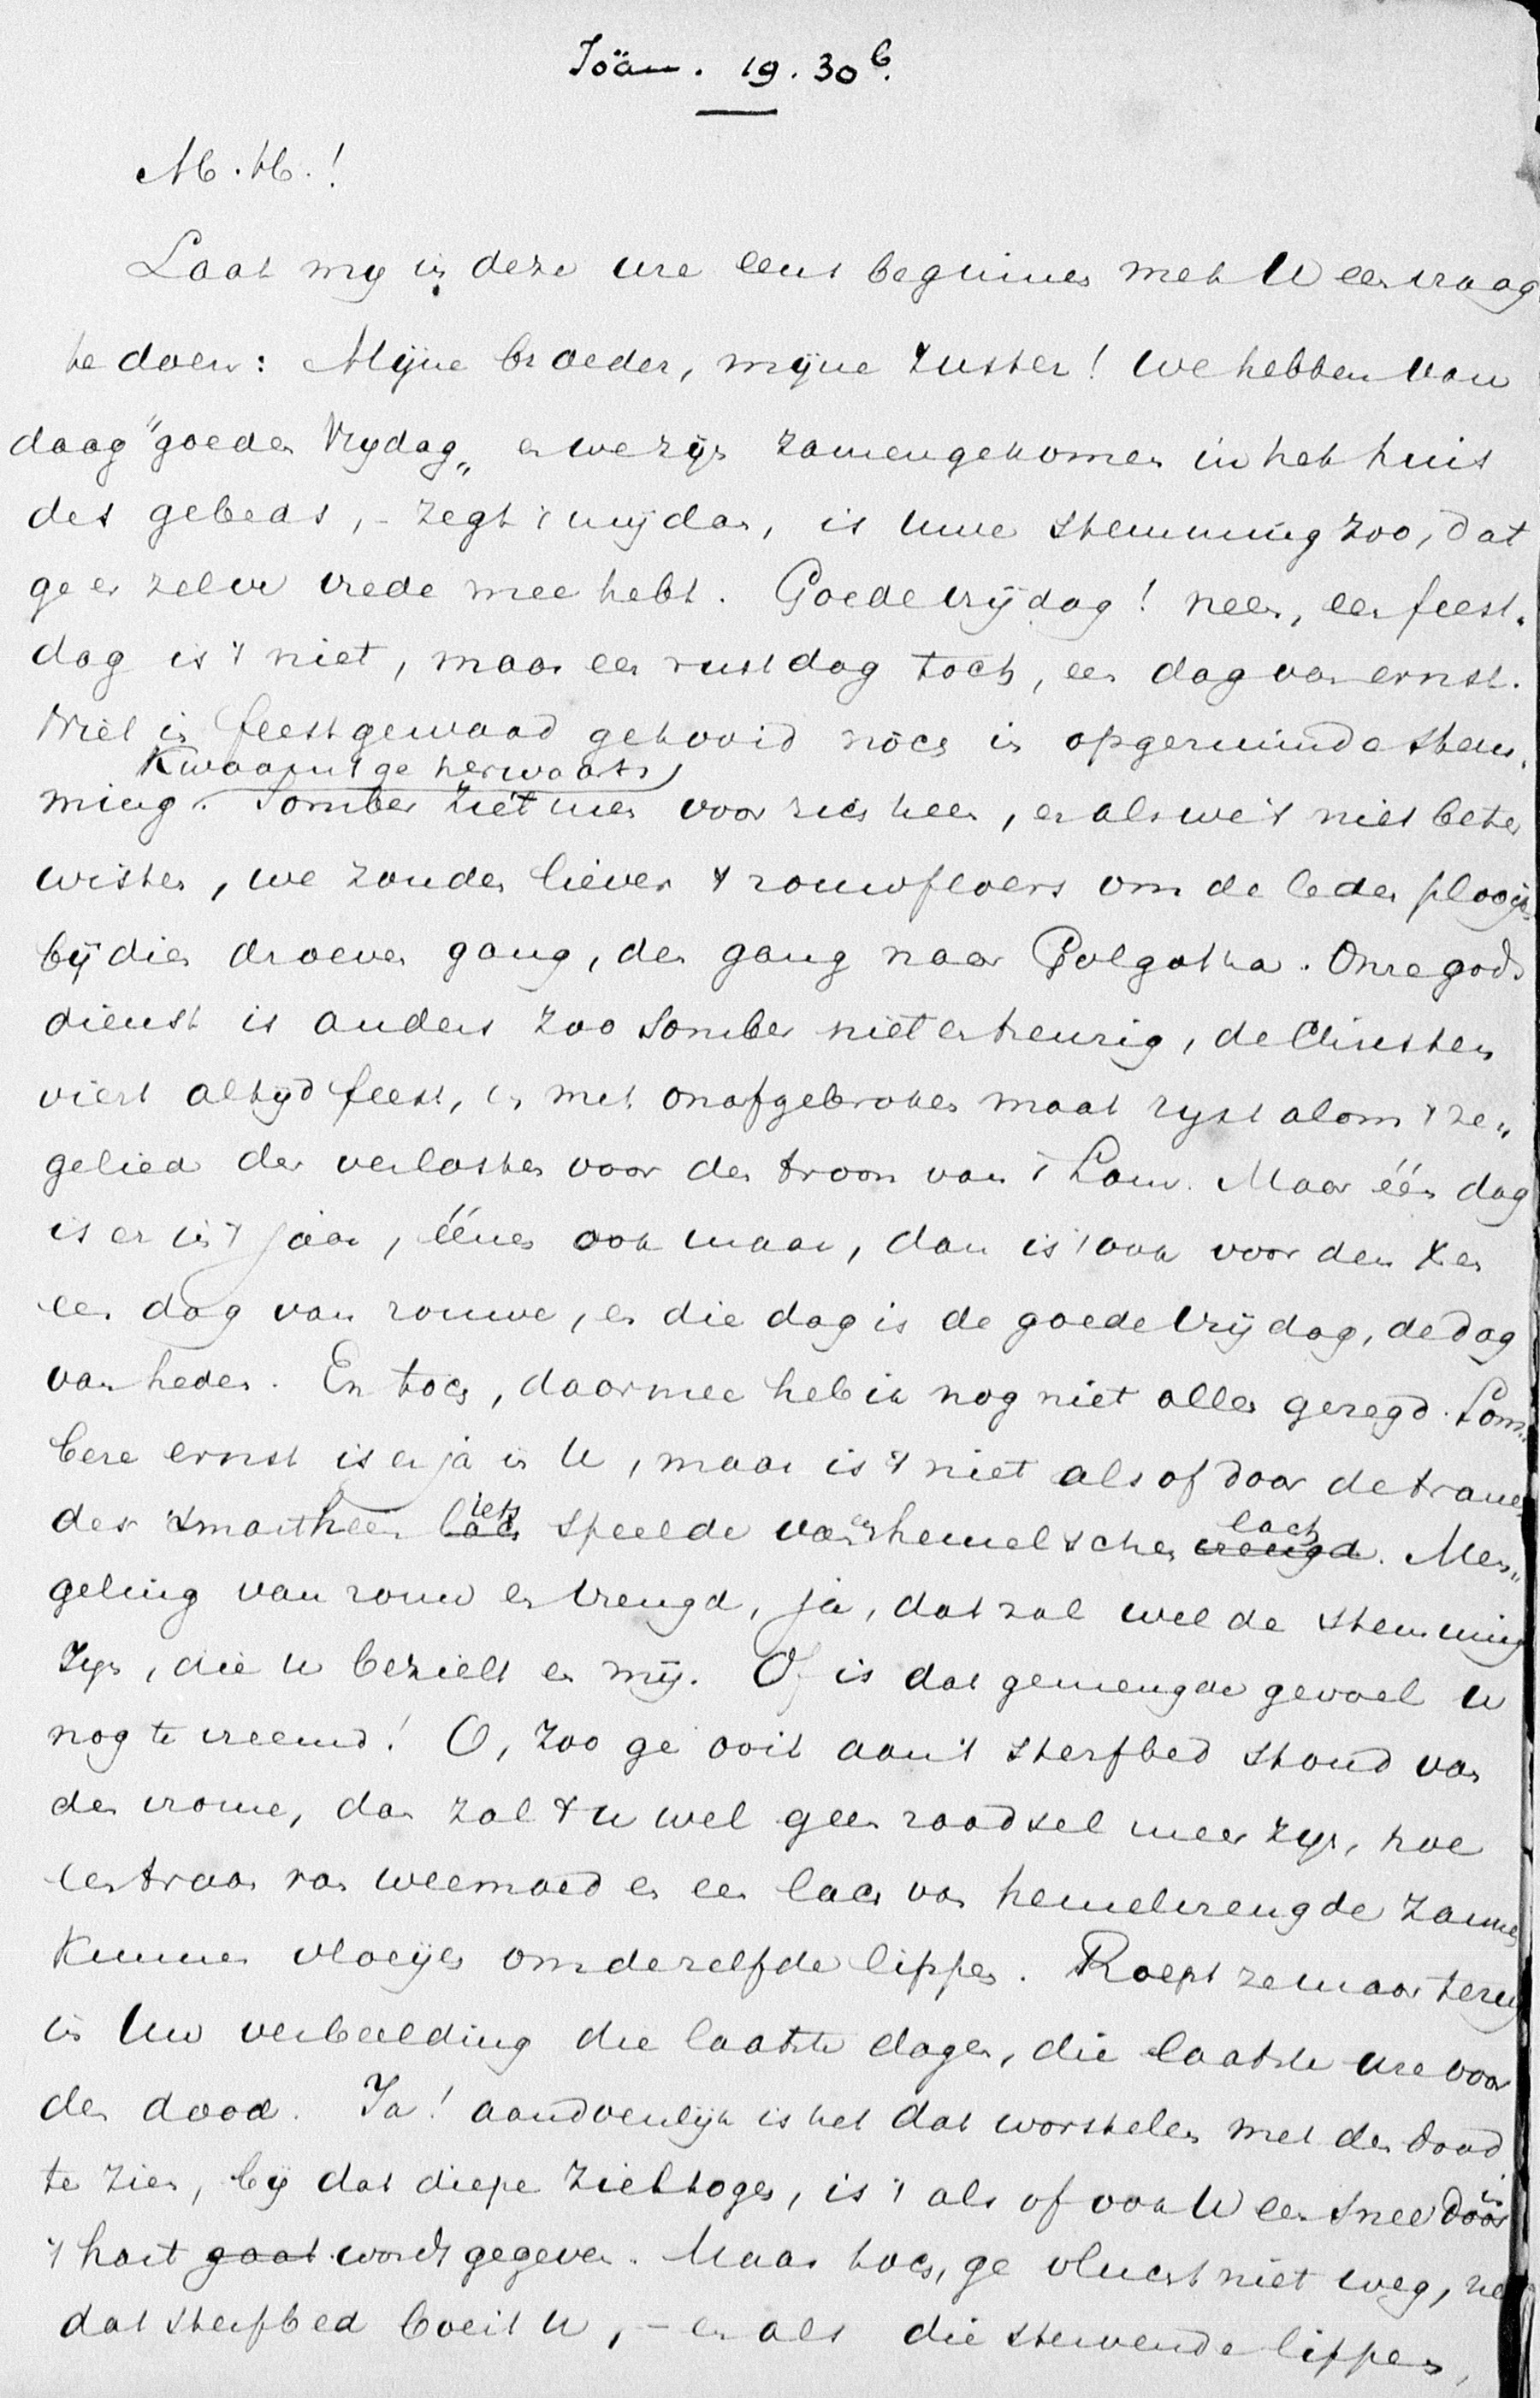 Joän. 19. 30b.
M. H.!
Laat my in deze ure eens beginnen met U een vraag
te doen: Mijne broeder, mijne zuster! we hebben van
daag "goeden Vrydag„ en we zijn zamengekomen in het huis
des gebeds, – zegt 't mij dan, is uwe stemming zoo, dat
ge er zelve vrede mee hebt. Goede vrijdag! neen, een feest„
dag is 't niet, maar een rustdag toch, een dag van ernst.
Niet in feestgewaad getooid noch in opgeruimde stem„
Kwaamt ge herwaarts,
ming. Somber ziet men voor zich heen, en als we 't niet beter
wisten, we zouden liever 't rouwfloers om de leden plooijen
bij dien droeven gang, den gang naar Golgotha. Onze gods
dienst is anders zoo somber niet en treurig, de Christen
viert altyd feest, en met onafgebroken maat ryst alom 't ze„
gelied der verlosten voor den troon van 't Lam. Maar één dag
is er in 't jaar, éénen ook maar, dan is 't ook voor den Xen
een dag van rouwe, en die dag is de goede Vrijdag, de dag
van heden. En toch, daarmee heb ik nog niet alles gezegd. Som„
bere ernst is er ja in U, maar is 't niet alsof door de tranen
der smart heen lach iets speelde van een hemelschen vreugd lach. Men„
geling van rouw en vreugd, ja, dat zal wel de stemming
zyn, die U bezielt en mij. Of is dat gemengde gevoel U
nog te vreemd! O, zoo ge ooit aan 't sterfbed stond van
den vrome, dan zal 't U wel geen raadsel meer zyn, hoe
een traan van weemoed en een lach van hemelvreugde zamen
kunnen vloeijen om dezelfde lippen. Roept ze maar terug
in Uw verbeelding die laatste dagen, die laatste ure voor
den dood. Ja! aandoenlijk is het dat worstelen met den dood
te zien, bij dat diepe zieltogen, is 't als of ook U een snee door in
't hart gaat wordt gegeven. Maar toch, ge vlucht niet weg, nee
dat sterfbed boeit U, – en als die stervende lippen,